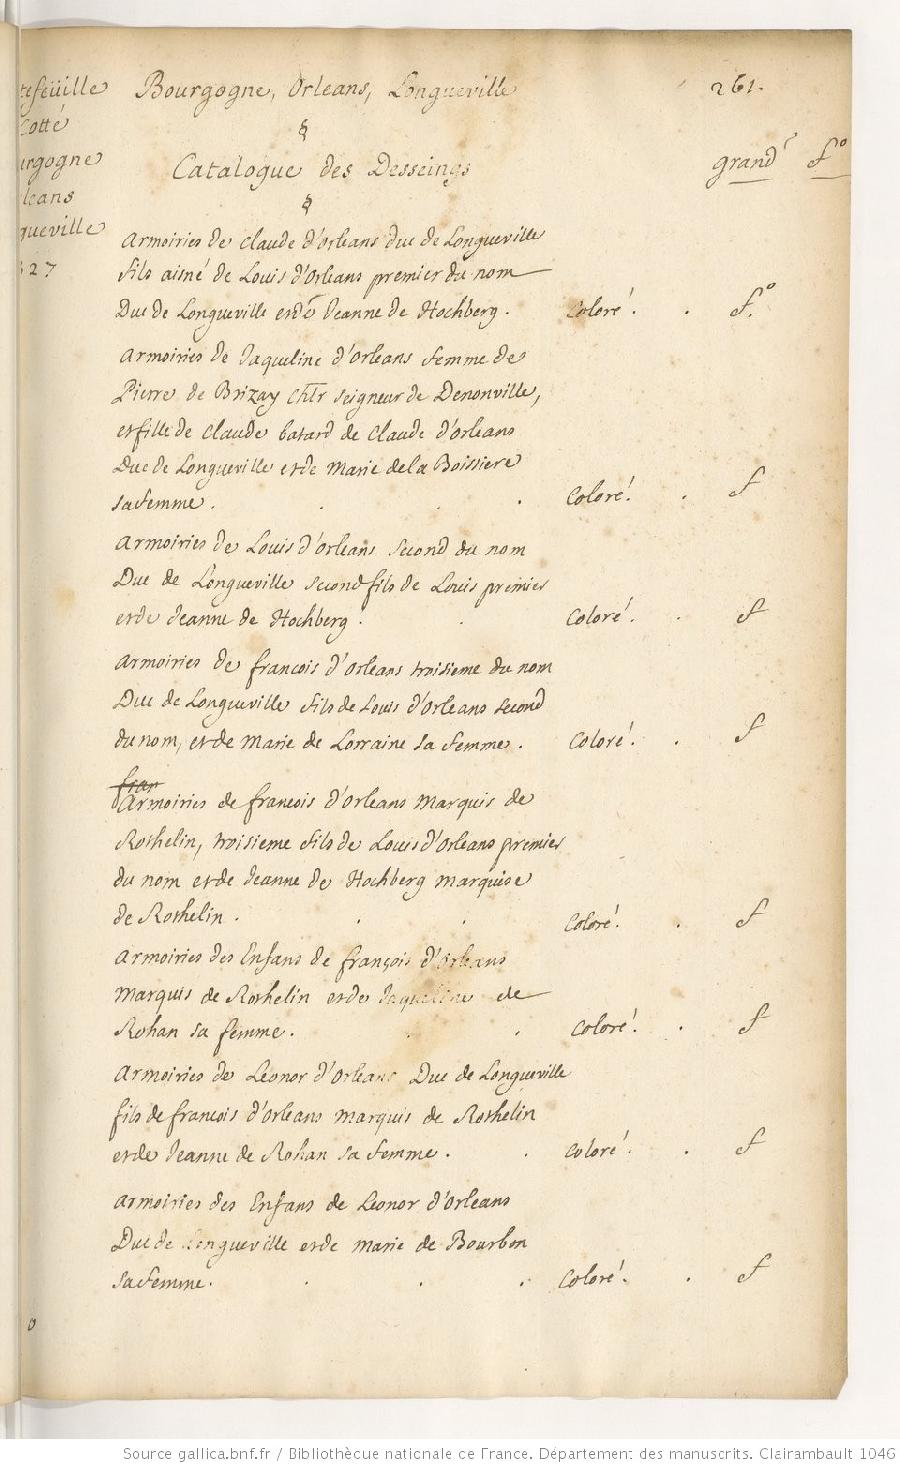 Bourgogne, Orleans, Longueville 261.
§
Catalogue des Desseings grand^r f^o
§
Armoiries de Claude d'Orleans Duc de Longueville
fils aisné de Louis d'Orleans premier du nom
Duc de Longueville et de Jeanne de Hochberg. Coloré. . f^o
Armoiries de Jaqueline d'Orleans femme de
Pierre de Brizay chlr seigneur de Denonville,
et fille de Claude batard de Claude d'Orleans
Duc de Longueville et de Marie de la Boissiere
sa femme. . . Coloré. . f
Armoiries de Louis d'Orleans second du nom
Duc de Longueville second fils de Louis premier
et de Jeanne de Hochberg. . Coloré. . f
Armoiries de françois d'Orleans troisieme du nom
Duc de Longueville fils de Louis d'Orleans second
du nom, et de Marie de Lorraine sa femme. Coloré. . f
fran
Armoiries de francois d'Orleans Marquis de
Rothelin, troisieme fils de Louis d'Orleans premier
du nom et de Jeanne de Hochberg Marquise
de Rothelin. . . Coloré. . f
Armoiries des Enfans de françois d'Orleans
Marquis de Rothelin et de Jaqueline de
Rohan sa femme. . . Coloré. . f
Armoiries de Leonor d'Orleans Duc de Longueville
fils de francois d'Orleans Marquis de Rothelin
et de Jeanne de Rohan sa femme. . Coloré. . f
Armoiries des Enfans de Leonor d'Orleans
Duc de Longueville et de Marie de Bourbon
sa femme. . . . Coloré. . f
tefeüille
Cotté
urgogne
leans
gueville
27
Source gallica.bnf.fr / Bibliothèque nationale de France. Département des manuscrits. Clairambault 1046